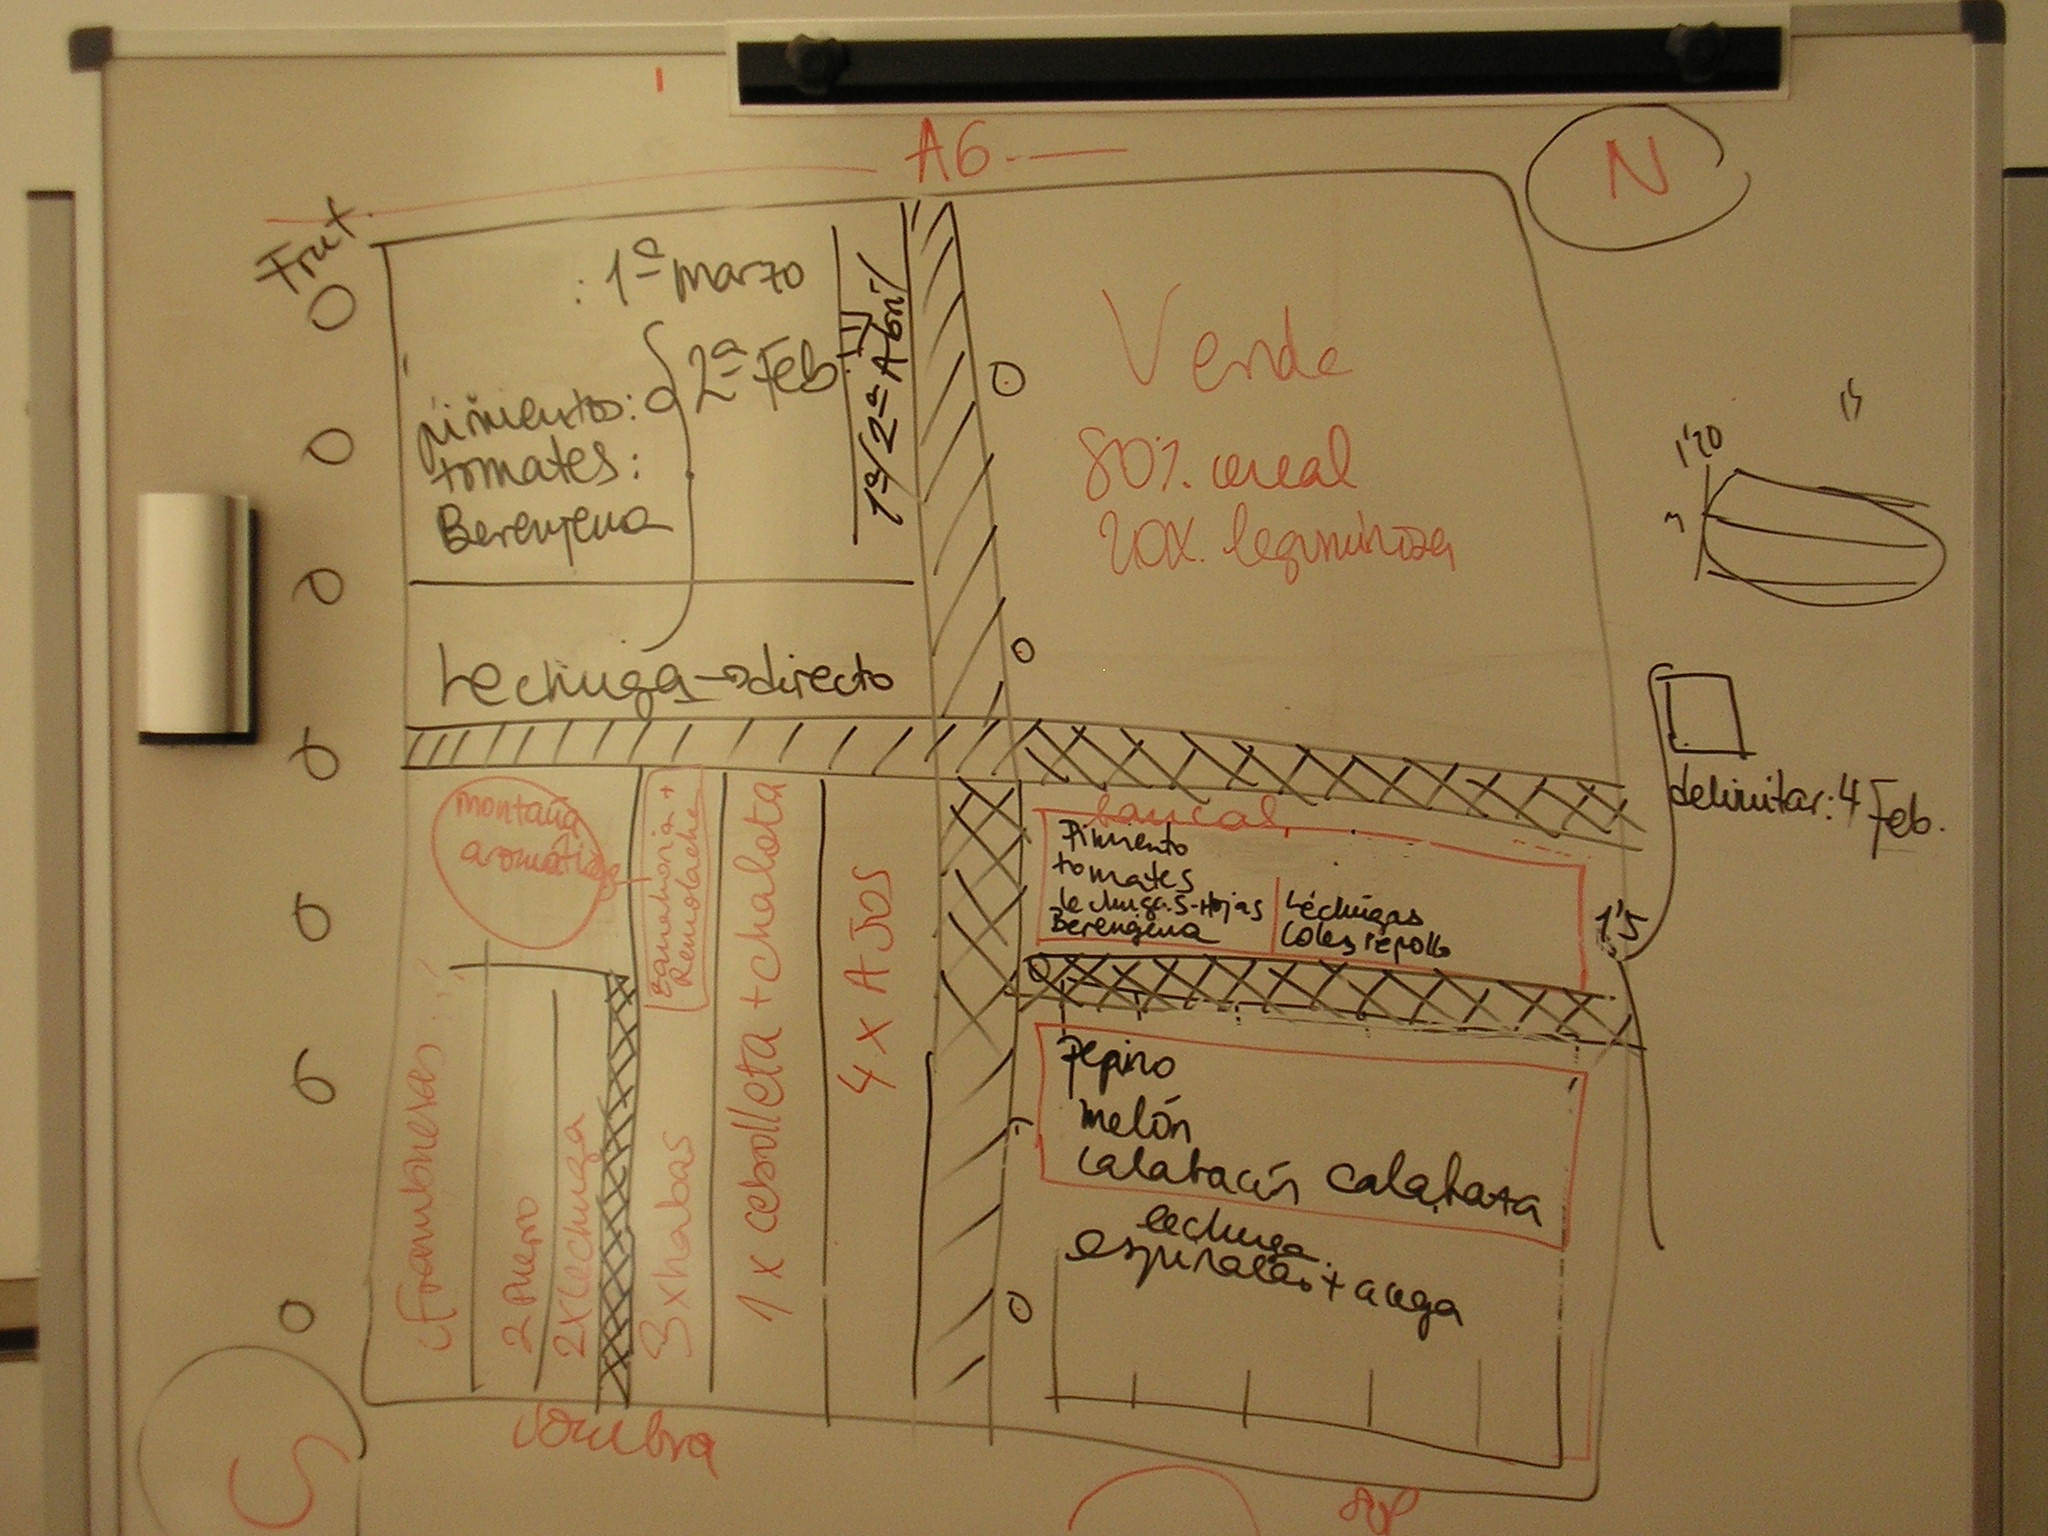 A6
N
Frut.
: 1ª marzo
2ª Feb.
1ª/2ª Abril
pimientos:
tomates:
Berenjena
Lechuga → directo
Verde
80% cereal
20% leguminosa
1'20
delimitar: 4 Feb.
1'5
montaña
aromáticas
zanahoria +
Remolacha
¿Frambuesas?
2 Puerro
2x Lechuga
3 x habas
1 x cebolleta + chalota
4 x AJOS
bancal
Pimiento
tomates
lechugas-Hojas
Berengena
Lechugas
Coles repollo
Pepino
melón
calabacín calabaza
lechuga
espinacas + acega
sombra
S